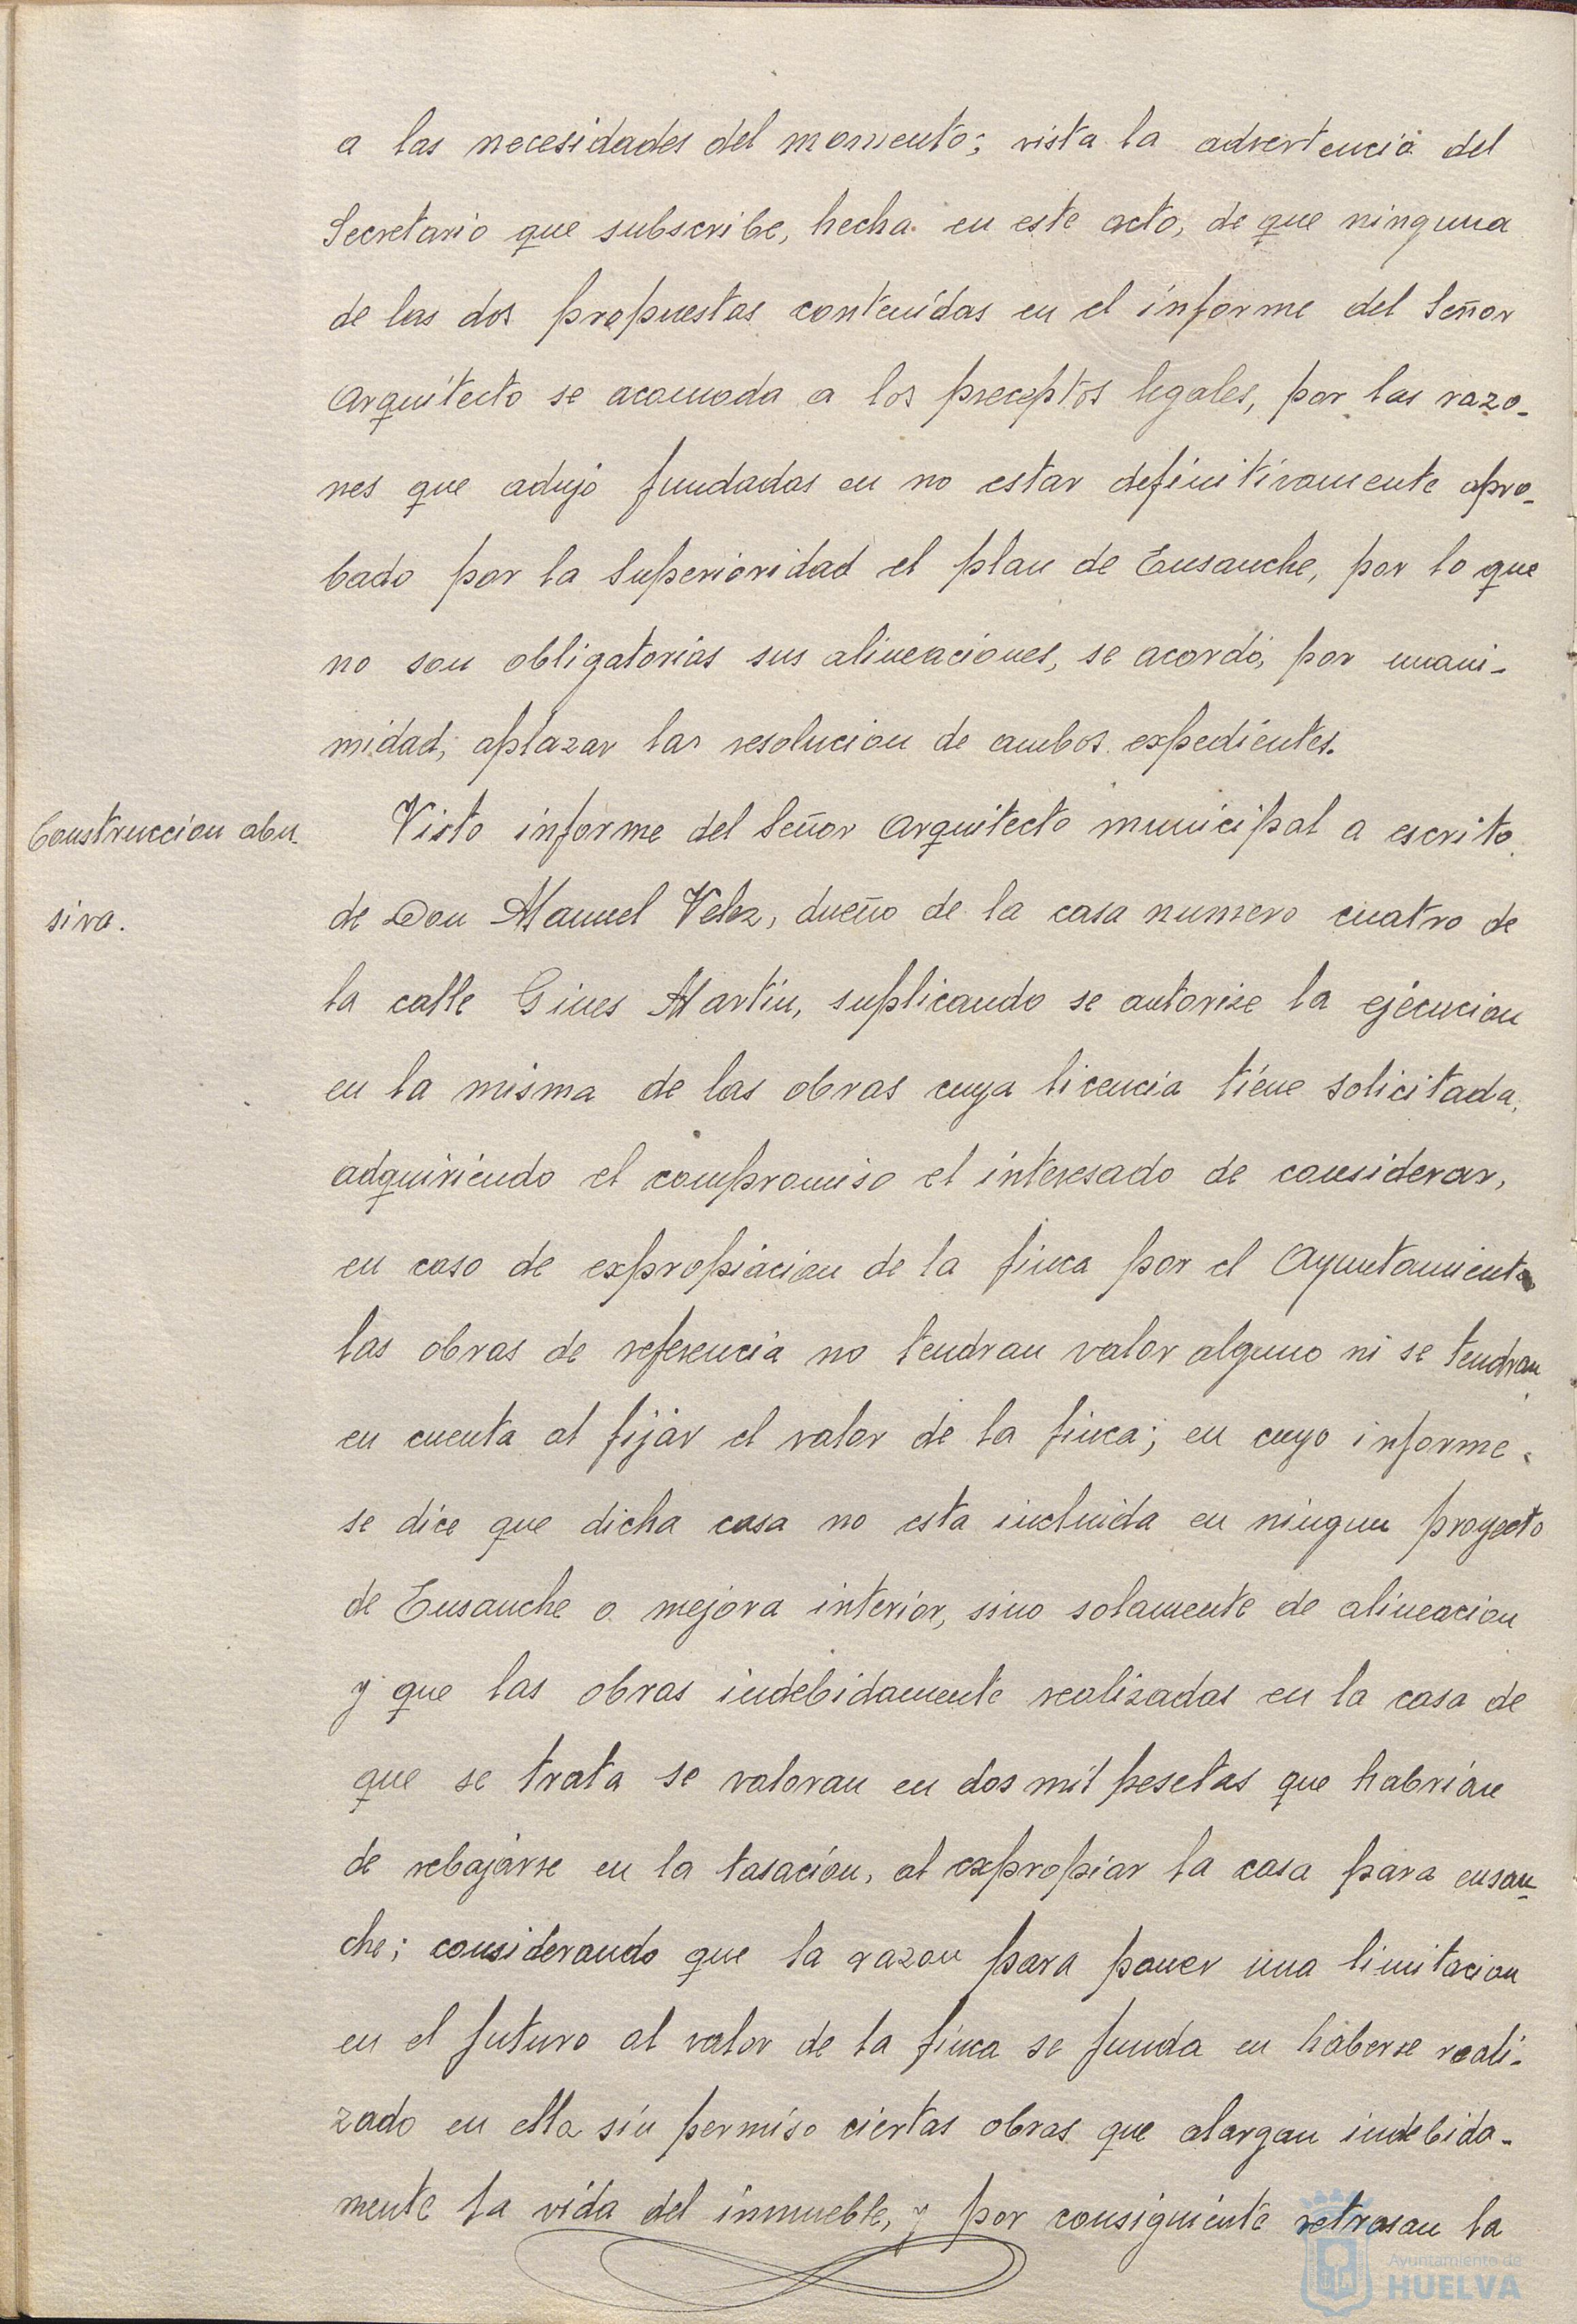 a las necesidades del momento; vista la advertencia del
Secretario que subscribe, hecha en este acto, de que ninguna
de las dos propuestas contenidas en el informe del Señor
Arquitecto se acomoda a los preceptos legales, por las razo-
nes que adujo fundadas en no estar definitivamente apro-
bado por la Superioridad el plan de Ensanche, por lo que
no son obligatorias sus alineaciones, se acordó, por unani-
midad, aplazar la resolucion de ambos expedientes.
Construccion abu-
siva.
Visto informe del Señor Arquitecto municipal a escrito
de Don Manuel Velez, dueño de la casa numero cuatro de
la calle Gines Martin, suplicando se autorize la ejecucion
en la misma de las obras cuya licencia tiene solicitada,
adquiriendo el compromiso el interesado de considerar,
en caso de expropiacion de la finca por el Ayuntamiento
las obras de referencia no tendran valor alguno ni se tendran
en cuenta al fijar el valor de la finca; en cuyo informe
se dice que dicha casa no esta incluida en ningun proyecto
de Ensanche o mejora interior, sino solamente de alineacion
y que las obras indebidamente realizadas en la casa de
que se trata se valoran en dos mil pesetas que habrian
de rebajarse en la tasación, al expropiar la casa para ensan-
che; considerando que la razon para poner una limitacion
en el futuro al valor de la finca se funda en haberse reali-
zado en ella sin permiso ciertas obras que alargan indebida-
mente la vida del inmueble, y por consiguiente retrasan la
Ayuntamiento de
HUELVA